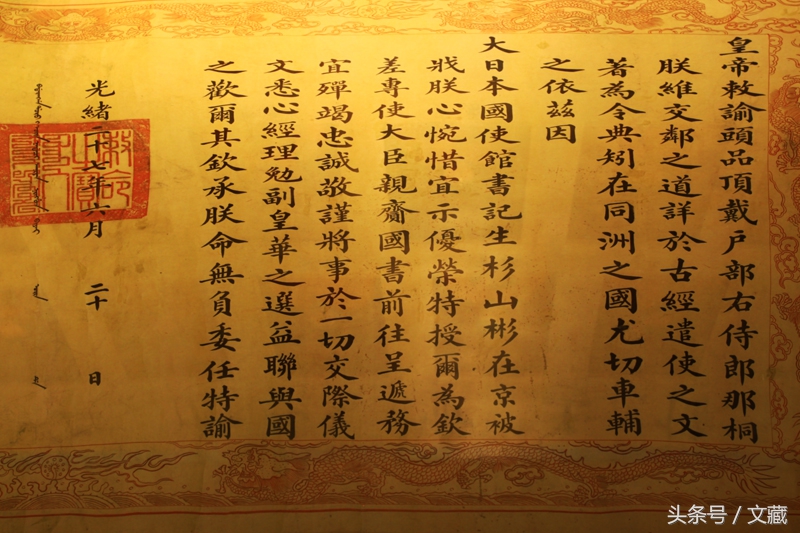 皇帝敕諭頭品頂戴戶部右侍郎那桐
朕維交鄰之道詳於古經遣使之文
著為令典矧在同洲之國尤切車輔
之依茲因
大日本國使館書記生杉山彬在京被
戕朕心惋惜宜示優榮特授爾為欽
差專使大臣親齎國書前往呈遞務
宜殫竭忠誠敬謹將事於一切交際儀
文悉心經理勉副皇華之選益聯與國
之歡爾其欽承朕命無負委任特諭
光緒二十七年六月二十日
头条号 / 文藏